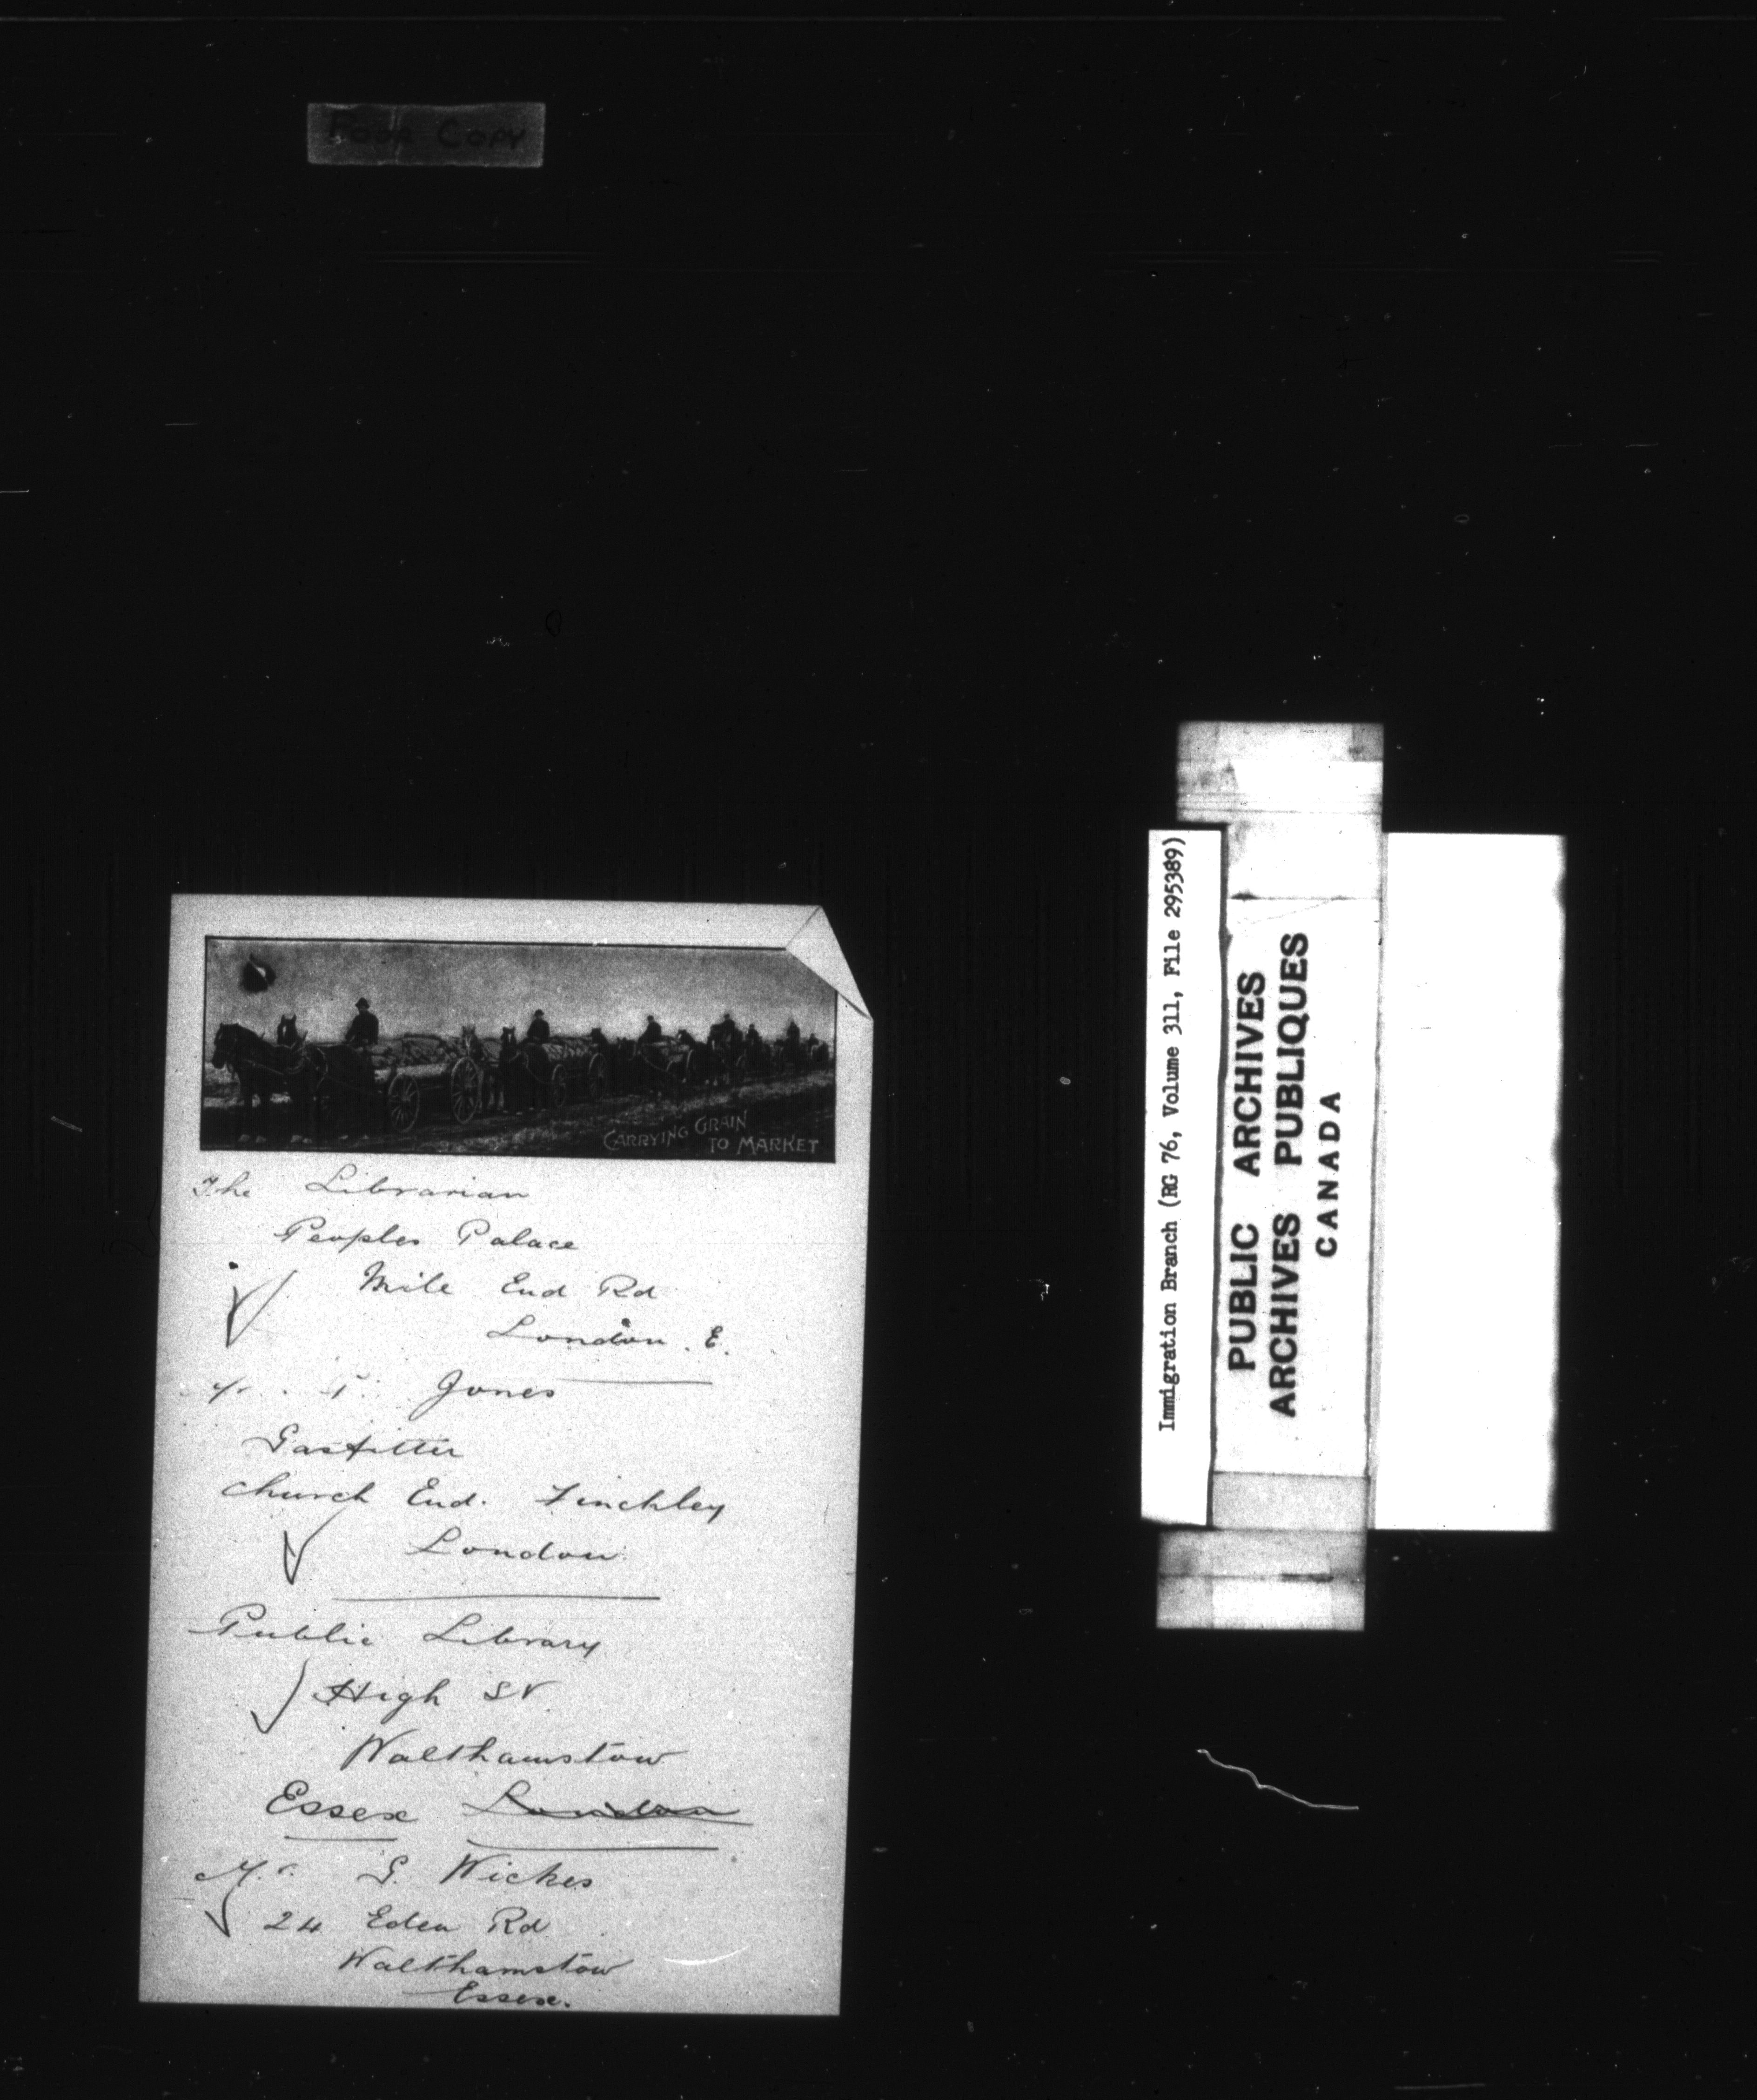 Poor Copy
CARRYING GRAIN
TO MARKET
The Librarian
Peoples Palace
Mile End Rd
London. E.
Jones
Gasfitter
Church End. Finchley
London
Public Library
High St
Walthamstow
Essex London
Mr. G. Wickes
24 Eden Rd
Walthamstow
Essex.
Immigration Branch (RG 76, Volume 311, File 295389)
PUBLIC ARCHIVES
ARCHIVES PUBLIQUES
CANADA